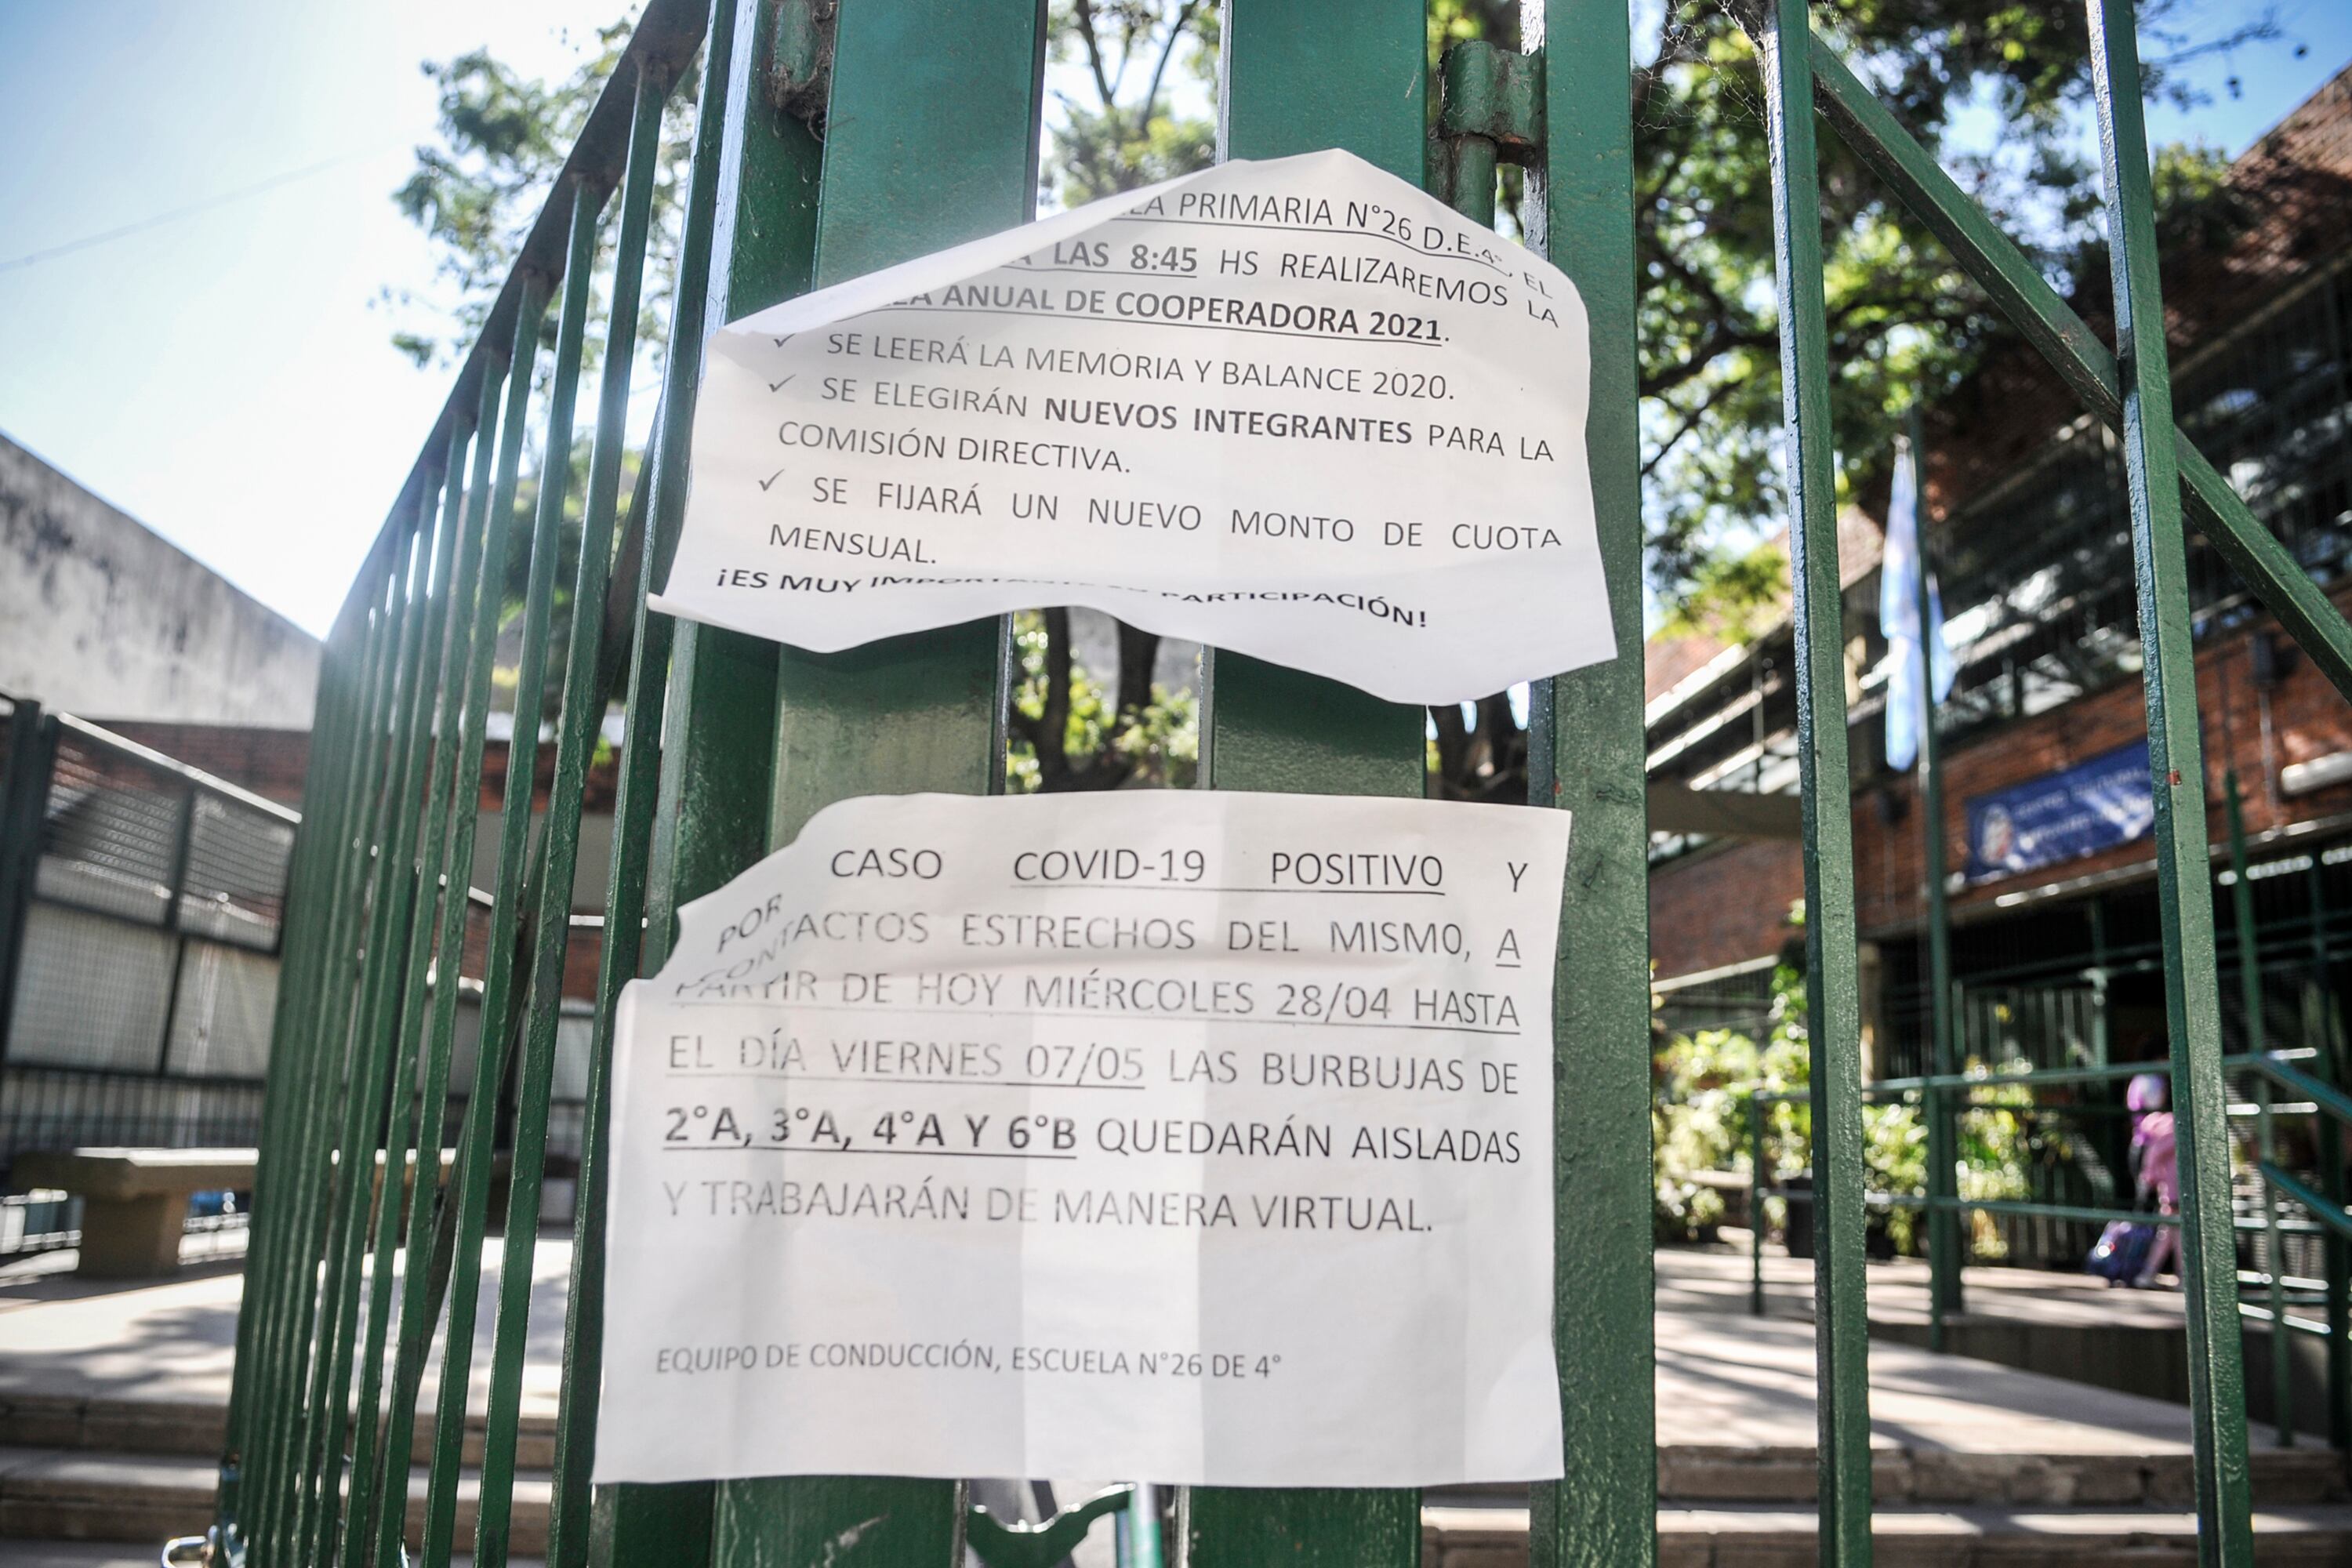 PRIMARIA N°26 D.E.4°, EL
LAS 8:45 HS REALIZAREMOS LA
ANUAL DE COOPERADORA 2021.
✓ SE LEERÁ LA MEMORIA Y BALANCE 2020.
✓ SE ELEGIRÁN NUEVOS INTEGRANTES PARA LA
COMISIÓN DIRECTIVA.
✓ SE FIJARÁ UN NUEVO MONTO DE CUOTA
MENSUAL.
¡ES MUY IMPORTANTE SU PARTICIPACIÓN!
POR CASO COVID-19 POSITIVO Y
CONTACTOS ESTRECHOS DEL MISMO, A
PARTIR DE HOY MIÉRCOLES 28/04 HASTA
EL DÍA VIERNES 07/05 LAS BURBUJAS DE
2°A, 3°A, 4°A Y 6°B QUEDARÁN AISLADAS
Y TRABAJARÁN DE MANERA VIRTUAL.
EQUIPO DE CONDUCCIÓN, ESCUELA N°26 DE 4°